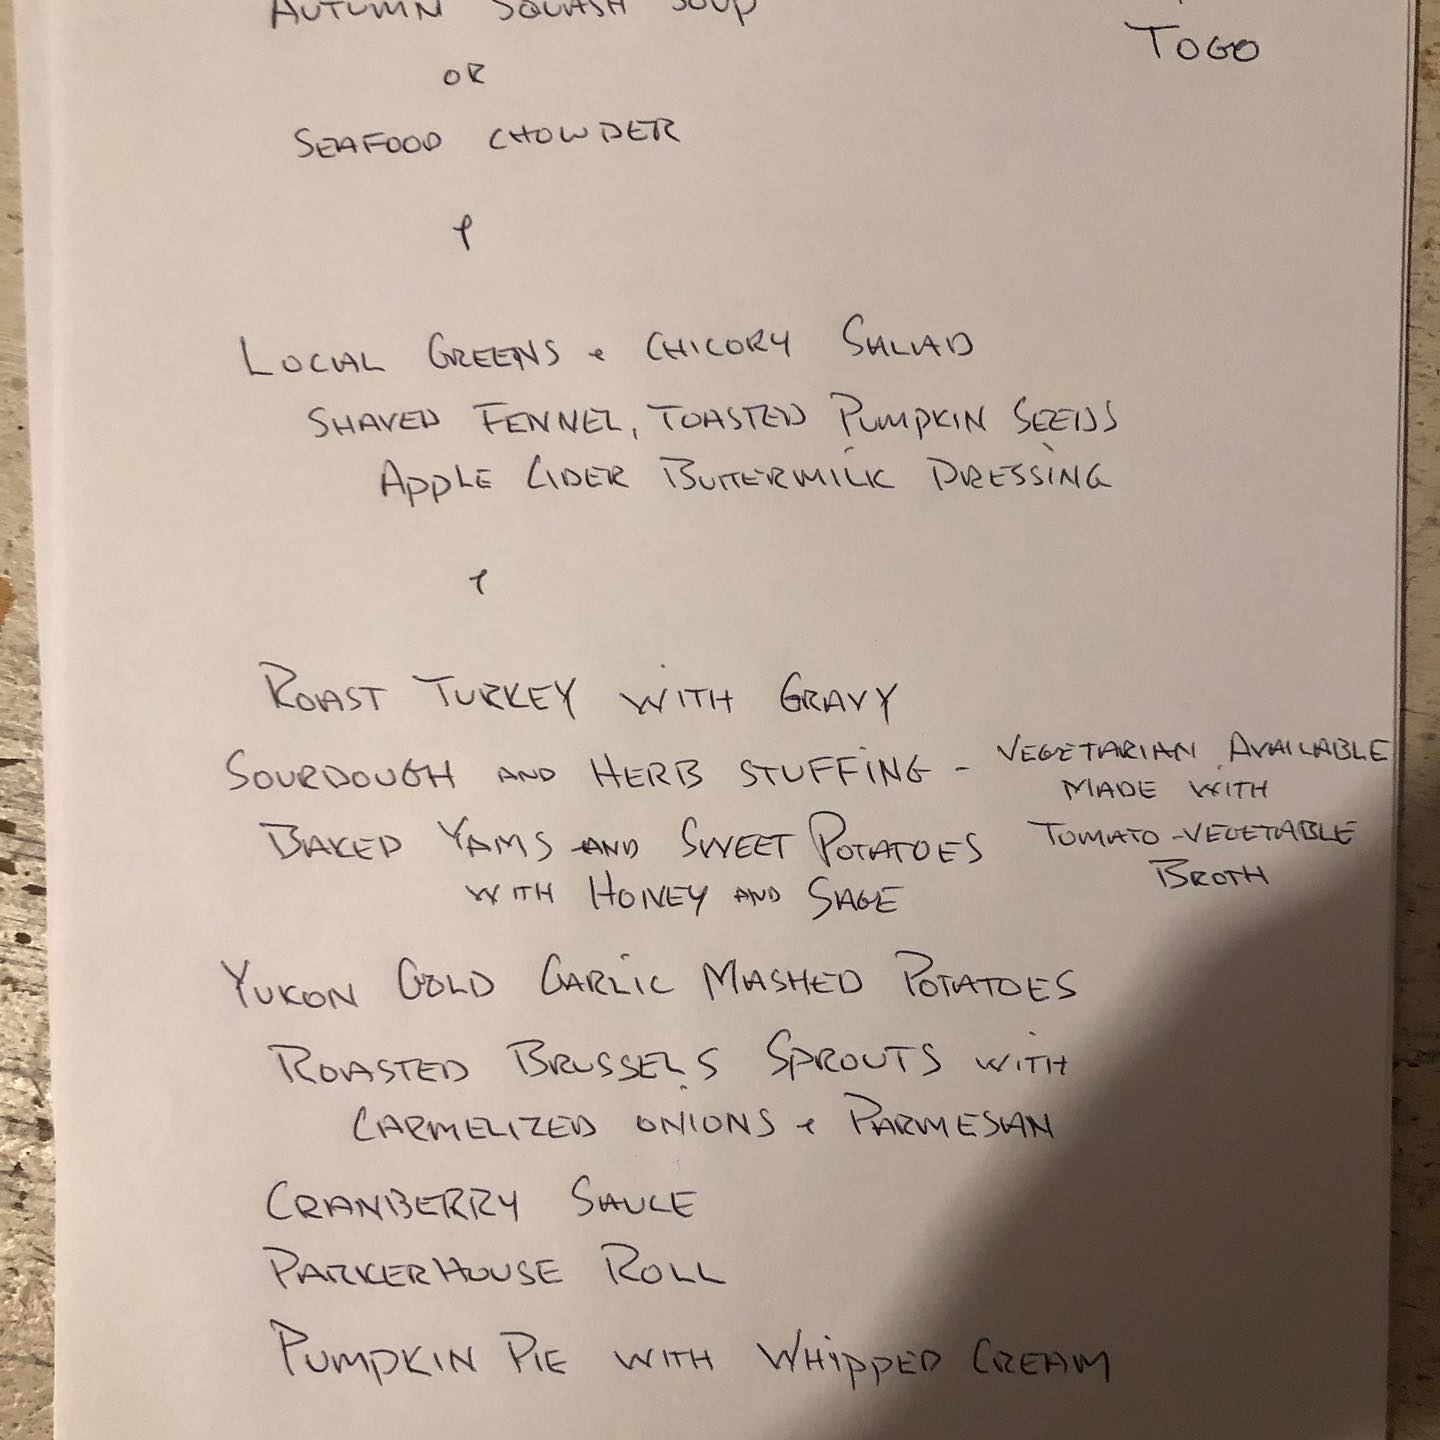 AUTUMN SQUASH SOUP
TOGO
OR
SEAFOOD CHOWDER
+
LOCAL GREENS + CHICORY SALAD
SHAVED FENNEL, TOASTED PUMPKIN SEEDS
APPLE CIDER BUTTERMILK DRESSING
+
ROAST TURKEY WITH GRAVY
SOURDOUGH AND HERB STUFFING - VEGETARIAN AVAILABLE
MADE WITH
BAKED YAMS AND SWEET POTATOES TOMATO-VEGETABLE
BROTH
WITH HONEY AND SAGE
YUKON GOLD GARLIC MASHED POTATOES
ROASTED BRUSSELS SPROUTS WITH
CARMELIZED ONIONS + PARMESAN
CRANBERRY SAUCE
PARKERHOUSE ROLL
PUMPKIN PIE WITH WHIPPED CREAM